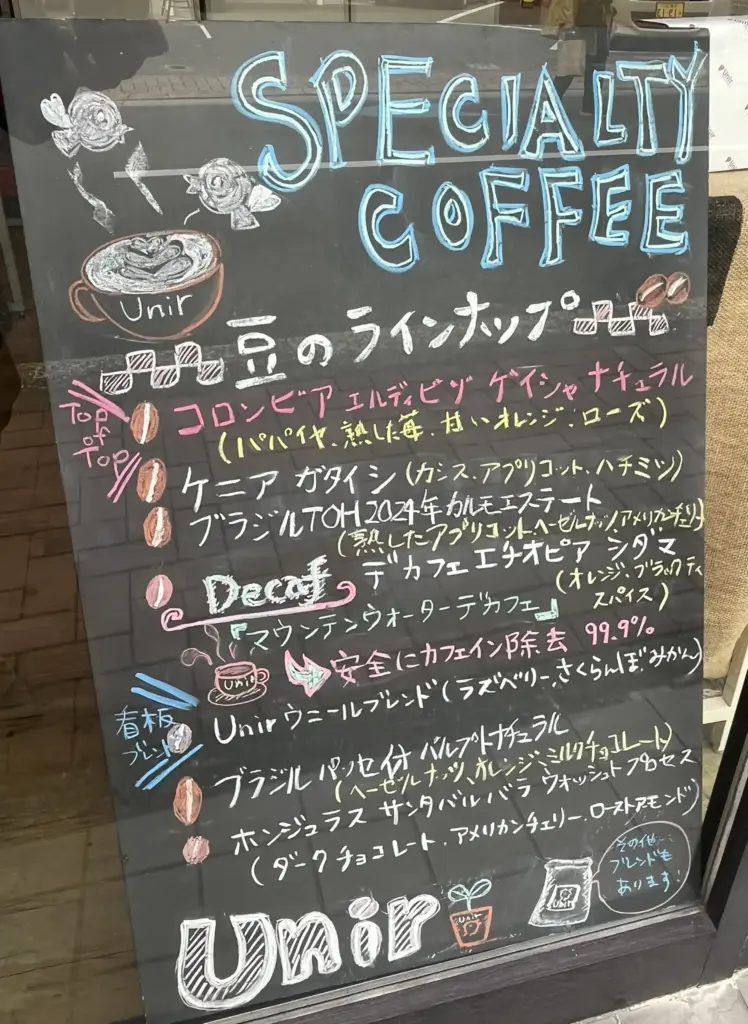 SPECIALTY
COFFEE
Unir
豆のラインナップ
Top of Top
コロンビア エルディビソ ゲイシャ ナチュラル
(パパイヤ、熟した苺、甘いオレンジ、ローズ)
ケニア ガタイシ (カシス、アプリコット、ハチミツ)
ブラジルTOH2024年カルモエステート
(熟したアプリコット、ヘーゼルナッツ、アメリカンチェリー)
Decaf デカフェ エチオピア シダマ
(オレンジ、ブラックティ
スパイス)
『マウンテンウォーターデカフェ』
安全にカフェイン除去 99.9%
Unir
看板
ブレンド
Unir ウニールブレンド (ラズベリー、さくらんぼ、みかん)
ブラジル パッセイオ パルプトナチュラル
(ヘーゼルナッツ、オレンジ、ミルクチョコレート)
ホンジュラス サンタバルバラ ウォッシュトプロセス
(ダークチョコレート、アメリカンチェリー、ローストアモンド)
その他
ブレンドも
あります!
Unir
Unir
Unir